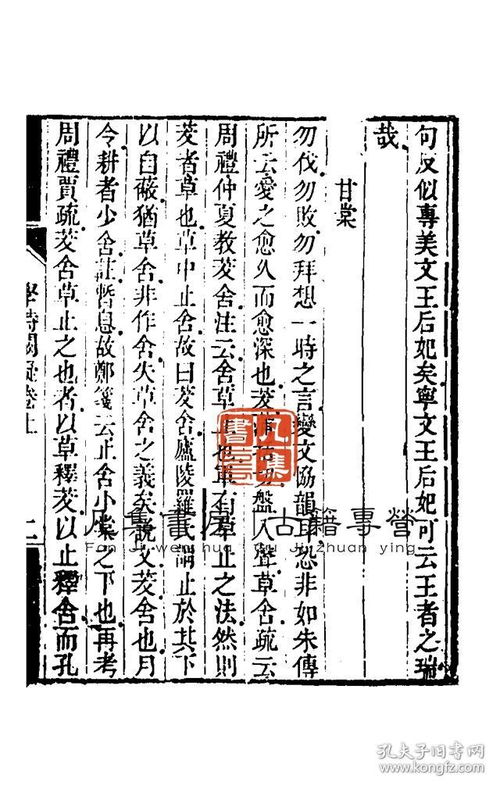 句反似專美文王后妃矣寧文王后妃可云王者之瑞
哉
甘棠
勿伐勿敗勿拜想一時之言變文協韻耳恐非如朱傳
所云愛之愈久而愈深也茇蒲 盤入聲草舍疏云
周禮仲夏教茇舍注云舍草止也軍有草止之法然則
茇者草也草中止舍故曰茇舍廬陵羅氏謂止於其下
以自蔽猶草舍非作舍失草舍之義矣說文茇舍也月
令耕者少舍註暫息故鄭箋云止舍小棠之下也再考
周禮賈疏茇舍草止之也者以草釋茇以止釋舍而孔
學詩闕疑卷上
二
凡集書
凡集書房 古籍專營
Fan ji wen hua you ji zhuan ying
孔夫子旧书网
www.kongfz.com